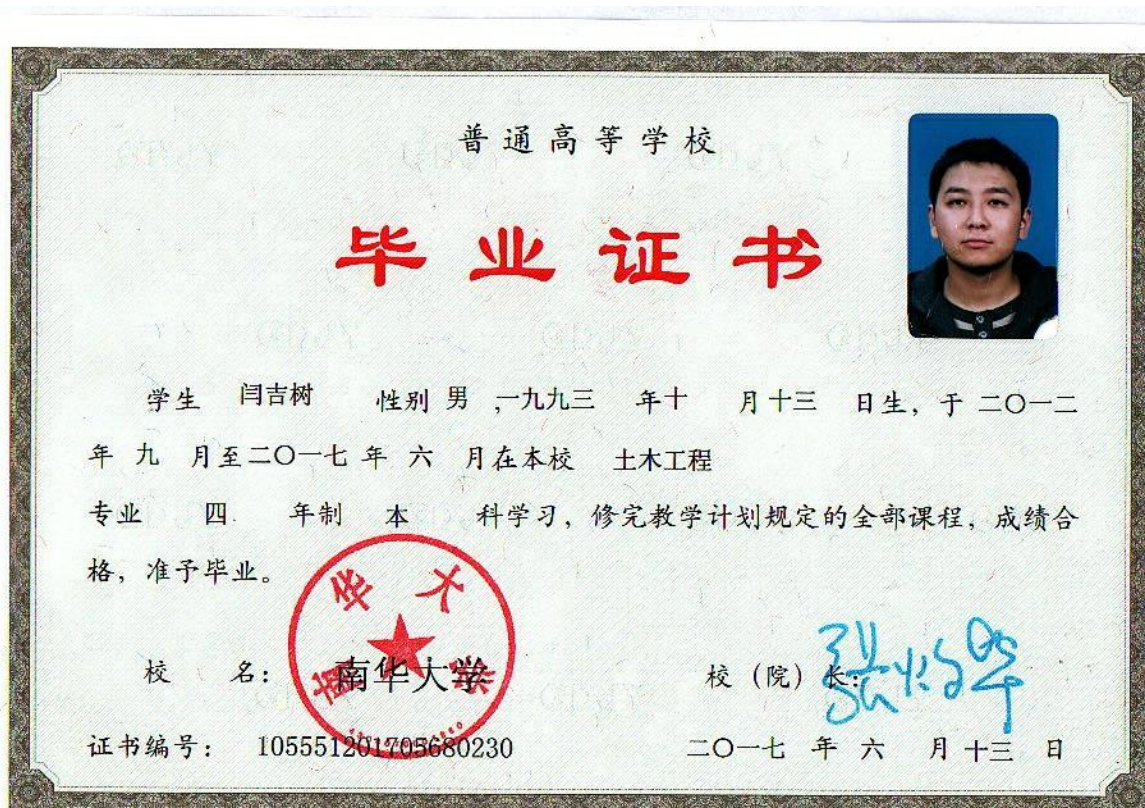 普通高等学校
毕业证书
学生 闫吉树 性别 男 ,一九九三 年十 月十三 日生，于 二〇一二
年 九 月至二〇一七 年 六 月在本校 土木工程
专业 四 年制 本 科学习，修完教学计划规定的全部课程，成绩合
格，准予毕业。
南华大学
校 名： 南华大学 校（院）长：
证书编号： 105551201705680230 二〇一七 年 六 月 十三 日